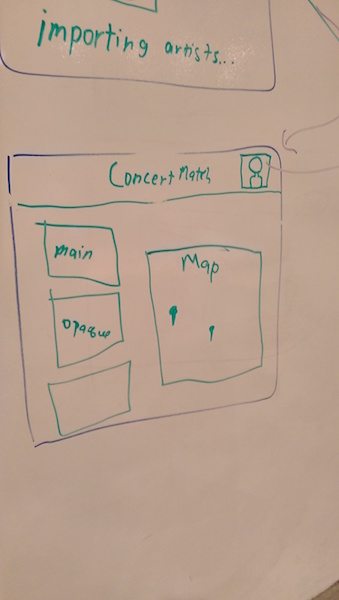 importing artists...
Concert Match
main
Map
opaque